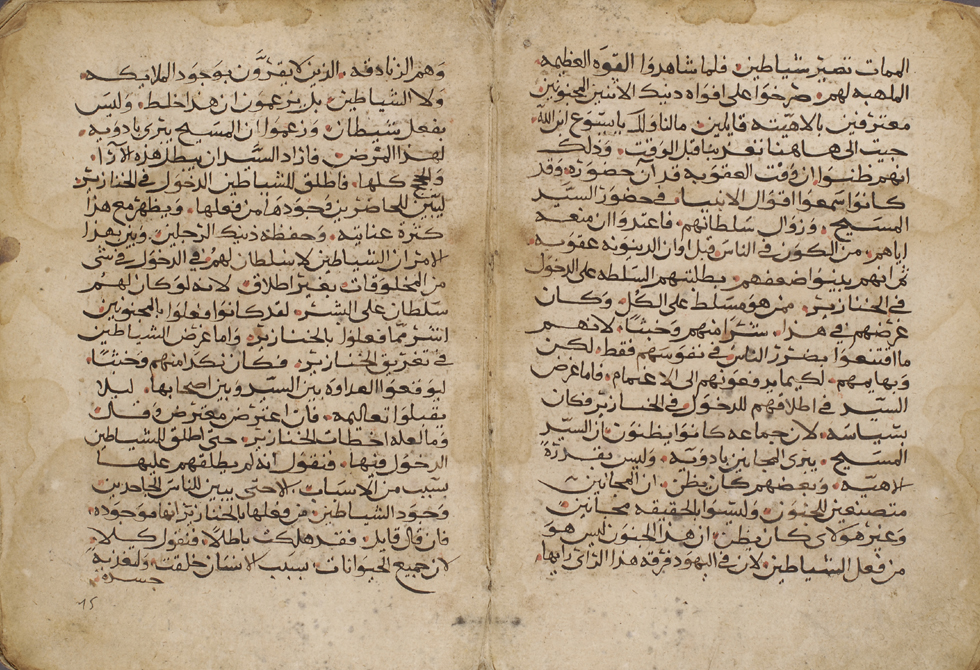 الممات تصير شياطين. فلما شاهدوا القوه العظيمه
الملهبه لهم. صرخوا على افواه دينك الاثنين المجنونين
معترفين بالاهيته قايلين. مالنا ولك يايسوع ابن الله
جيت الى هاهنا تعذبنا قبل الوقت. وذلك
انهم ظنوا ان وقت العقوبه قد آن حضوره. وقد
كانوا سمعوا اقوال الانبيا في حضور السيد
المسيح. وزوال سلطانهم. فاعتدوا ان منعه
اياهم. من الكون في الناس قبل اوان الدينونه عقوبه.
ثم انهم يدينوا ضعفهم. بطلبتهم السلطه على الدخول
في الخنازير. من هو مسلط على الكل. وكان
غرضهم في هذا. شرًا منهم وخبثًا. لانهم
ما اقتنعوا بضرر الناس في نفوسهم فقط. لكن
وبهايمهم. لكيما يدفعونهم الى الاغتمام. فاما غرض
السيد في اطلاقهم للدخول في الخنازير فكان
بسياسه. لان جماعه كانوا يظنون ان السيد
المسيح. يبرى المجانين بادويه. وليس بقدرةً
الاهيه. وبعضهم كان يظن. ان المجانين
متصنعين للجنون. وليسوا بالحقيقه مجانين.
وغير هولاى كان يظن. ان هذا الجنون ليس هو
من فعل الشياطين. لان في اليهود فرقه هذا الراى رايها.
وهم الزنادقه. الذين لا يقرَّون بوجود الملايكه.
ولا الشياطين. بل يزعمون ان هذا خلط. وليس
بفعل شيطان. وزعموا ان المسيح يبرى بادويه.
لهذا المرض. فاراد السَّيد ان يبطل هذه الآرآ.
كلها. فاطلق للشياطين الدخول في الخنازير
ليبين للحاضرين وجودها من فعلها. ويظهر مع هذا
كثرة عنايته. وحفظه دينك الرجلين. وبين بهذا
الامر ان الشياطين لا سلطان لهم في الدخول في شى
من المخلوقات. بغير اطلاق. لانه لو كان لهم
سلطان على البشر. لقد كانوا فعلوا بالمجنونين
اشر مما فعلوا بالخنازير. واما غرض الشياطين
في تغريق الخنازير. فكان نكد منهم وخبثًا.
ليوقعوا العداوه بين السيد وبين اصحابها. ليلا
يقبلوا تعاليمه. فان اعترض معترض وقال
وما لعله اخطات الخنازير. حتى اطلق للشياطين
الدخول فيها. فنقول انه لم يطلقهم عليها
بسبب من الاسباب. الا حتى يبين للناس الجاحدين
وجود الشياطين. من فعلها بالخنازير انها موجوده.
فان قال قايل. فقد هلكت باطلًا. فنقول كلا.
لان جميع الحيوانات. بسبب الانسان خلقت. ولتغذية
جسده
15